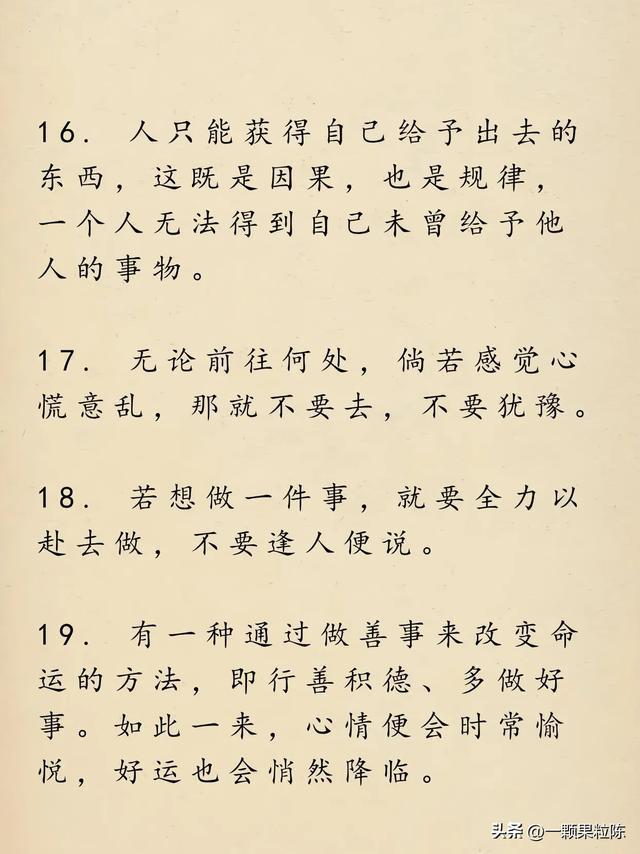 16. 人只能获得自己给予出去的
东西，这既是因果，也是规律，
一个人无法得到自己未曾给予他
人的事物。
17. 无论前往何处，倘若感觉心
慌意乱，那就不要去，不要犹豫。
18. 若想做一件事，就要全力以
赴去做，不要逢人便说。
19. 有一种通过做善事来改变命
运的方法，即行善积德、多做好
事。如此一来，心情便会时常愉
悦，好运也会悄然降临。
头条 @一颗果粒陈